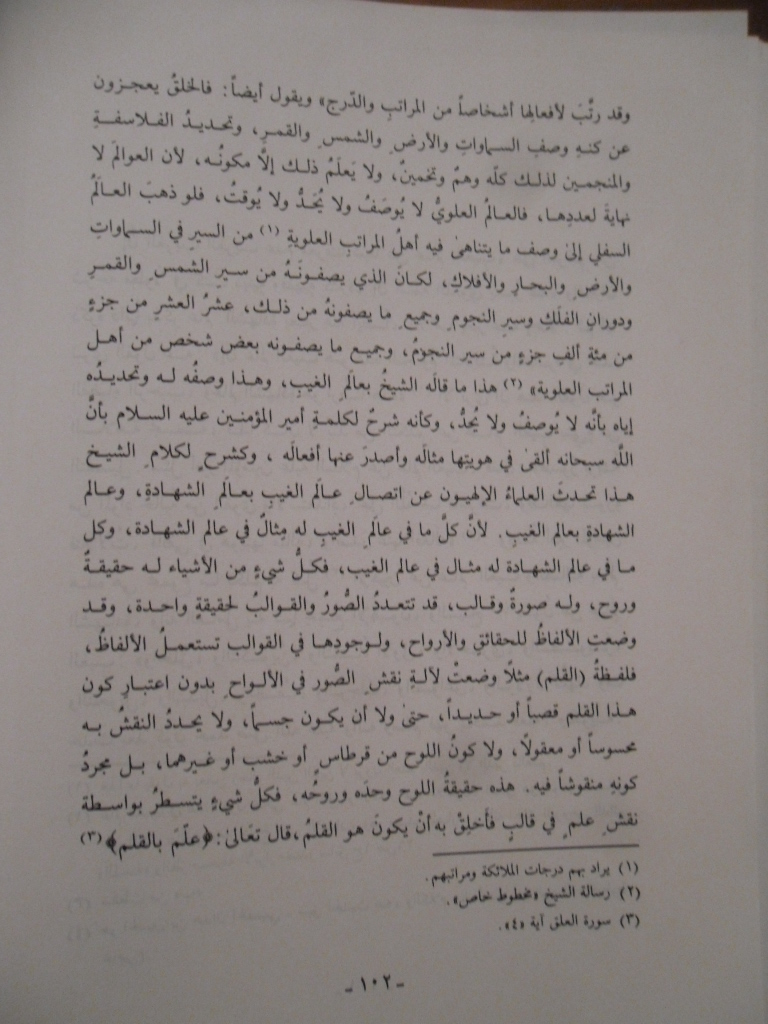 وقد رتَّبَ لأفعالِها أشخاصاً من المراتبِ والدّرج» ويقول أيضاً: فالخلقُ يعجـزون
عن كنـهِ وصفِ السـماواتِ والأرضِ والشمسِ والقمرِ، وتحـديـدُ الفـلاسفـةِ
والمنجمـين لذلـك كلّه وهمٌ وتخمينٌ، ولا يَعلَمُ ذلـك إلَّا مكونُـه، لأن العوالمَ لا
نهايةَ لعددِهـا، فالعـالمُ العلويُّ لا يُوصَفُ ولا يُحَدُّ ولا يُوقتُ، فلو ذهبَ العـالَمُ
السفلي إلىٰ وصف ما يتناهىٰ فيه أهلُ المراتبِ العلويةِ (١) من السيرِ في السـماواتِ
والأرضِ والبحـارِ والأفلاكِ، لكـانَ الذي يصفـونَـهُ من سـيرِ الشمسِ والقمـرِ
ودورانِ الفلَكِ وسيرِ النجومِ وجميعِ ما يصفونهُ من ذلـك، عشرُ العشرِ من جزءٍ
من مئةِ ألفِ جزءٍ من سير النجومُ، وجميـع ما يصفـونه بعض شخص من أهـل
المراتب العلوية» (٢) هذا ما قالَه الشيخُ بعالَمِ الغيبِ، وهـذا وصفُه لـه وتحديـدُه
إياه بأنَّه لا يُوصفُ ولا يُحدُّ، وكأنه شرحٌ لكلمـةِ أمير المؤمنـين عليه السـلام بأنَّ
اللَّه سبحانه ألقىٰ في هويتِها مثالَه وأصدرَ عنها أفعالَه ، وكشرحٍ لكلامِ الشيـخ
هـذا تحدثَ العلماءُ الإلهيـون عن اتصـالِ عـالَمِ الغيبِ بعـالَمِ الشهـادةِ، وعـالم
الشهادةِ بعالم الغيبِ. لأنَّ كلَّ ما في عالَمِ الغيبِ له مِثالٌ في عالم الشهـادة، وكل
مـا في عالم الشهـادة له مثـال في عالم الغيب، فكـلُّ شيءٍ من الأشياء لـه حقيقـةٌ
وروح، ولـه صورةٌ وقـالب، قد تتعـددُ الصُّورُ والقـوالبُ لحقيقةٍ واحـدة، وقـد
وضعتِ الألفاظُ للحقائقِ والأرواح، ولـوجودِهـا في القوالب تستعمـلُ الألفـاظُ،
فلفـظةُ (القلم) مثلًا وضعتْ لآلـةِ نقشِ الصُّور في الألـواحِ بدون اعتبـارِ كون
هـذا القلم قصباً أو حـديـداً، حتىٰ ولا أن يكـون جسـماً، ولا يحددُ النقشُ بـه
محسوساً أو معقولًا، ولا كونُ اللوح من قرطاسٍ أو خشب أو غـيرهمـا، بـل مجردُ
كونهِ منقوشـاً فيه. هذه حقيقةُ اللوح وحدَه وروحُه، فكلُّ شيءٍ يتسطـرُ بواسـطة
نقشِ علمٍ في قالبٍ فَأَخلِقْ به أنْ يكونَ هو القلمُ، قال تعَالىٰ: ﴿علّمَ بالقلم﴾ (٣)
(١) يراد بهم درجات الملائكة ومراتبهم.
(٢) رسالة الشيخ «مخطوط خاص».
(٣) سورة العلق آية «٤».
- ١٠٢ -